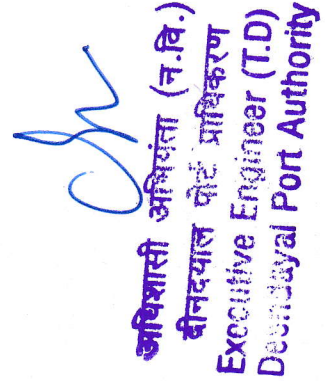 अधिशासी अभियंता (न.वि.)
दीनदयाल पोर्ट प्राधिकरण
Executive Engineer (T.D)
Deendayal Port Authority